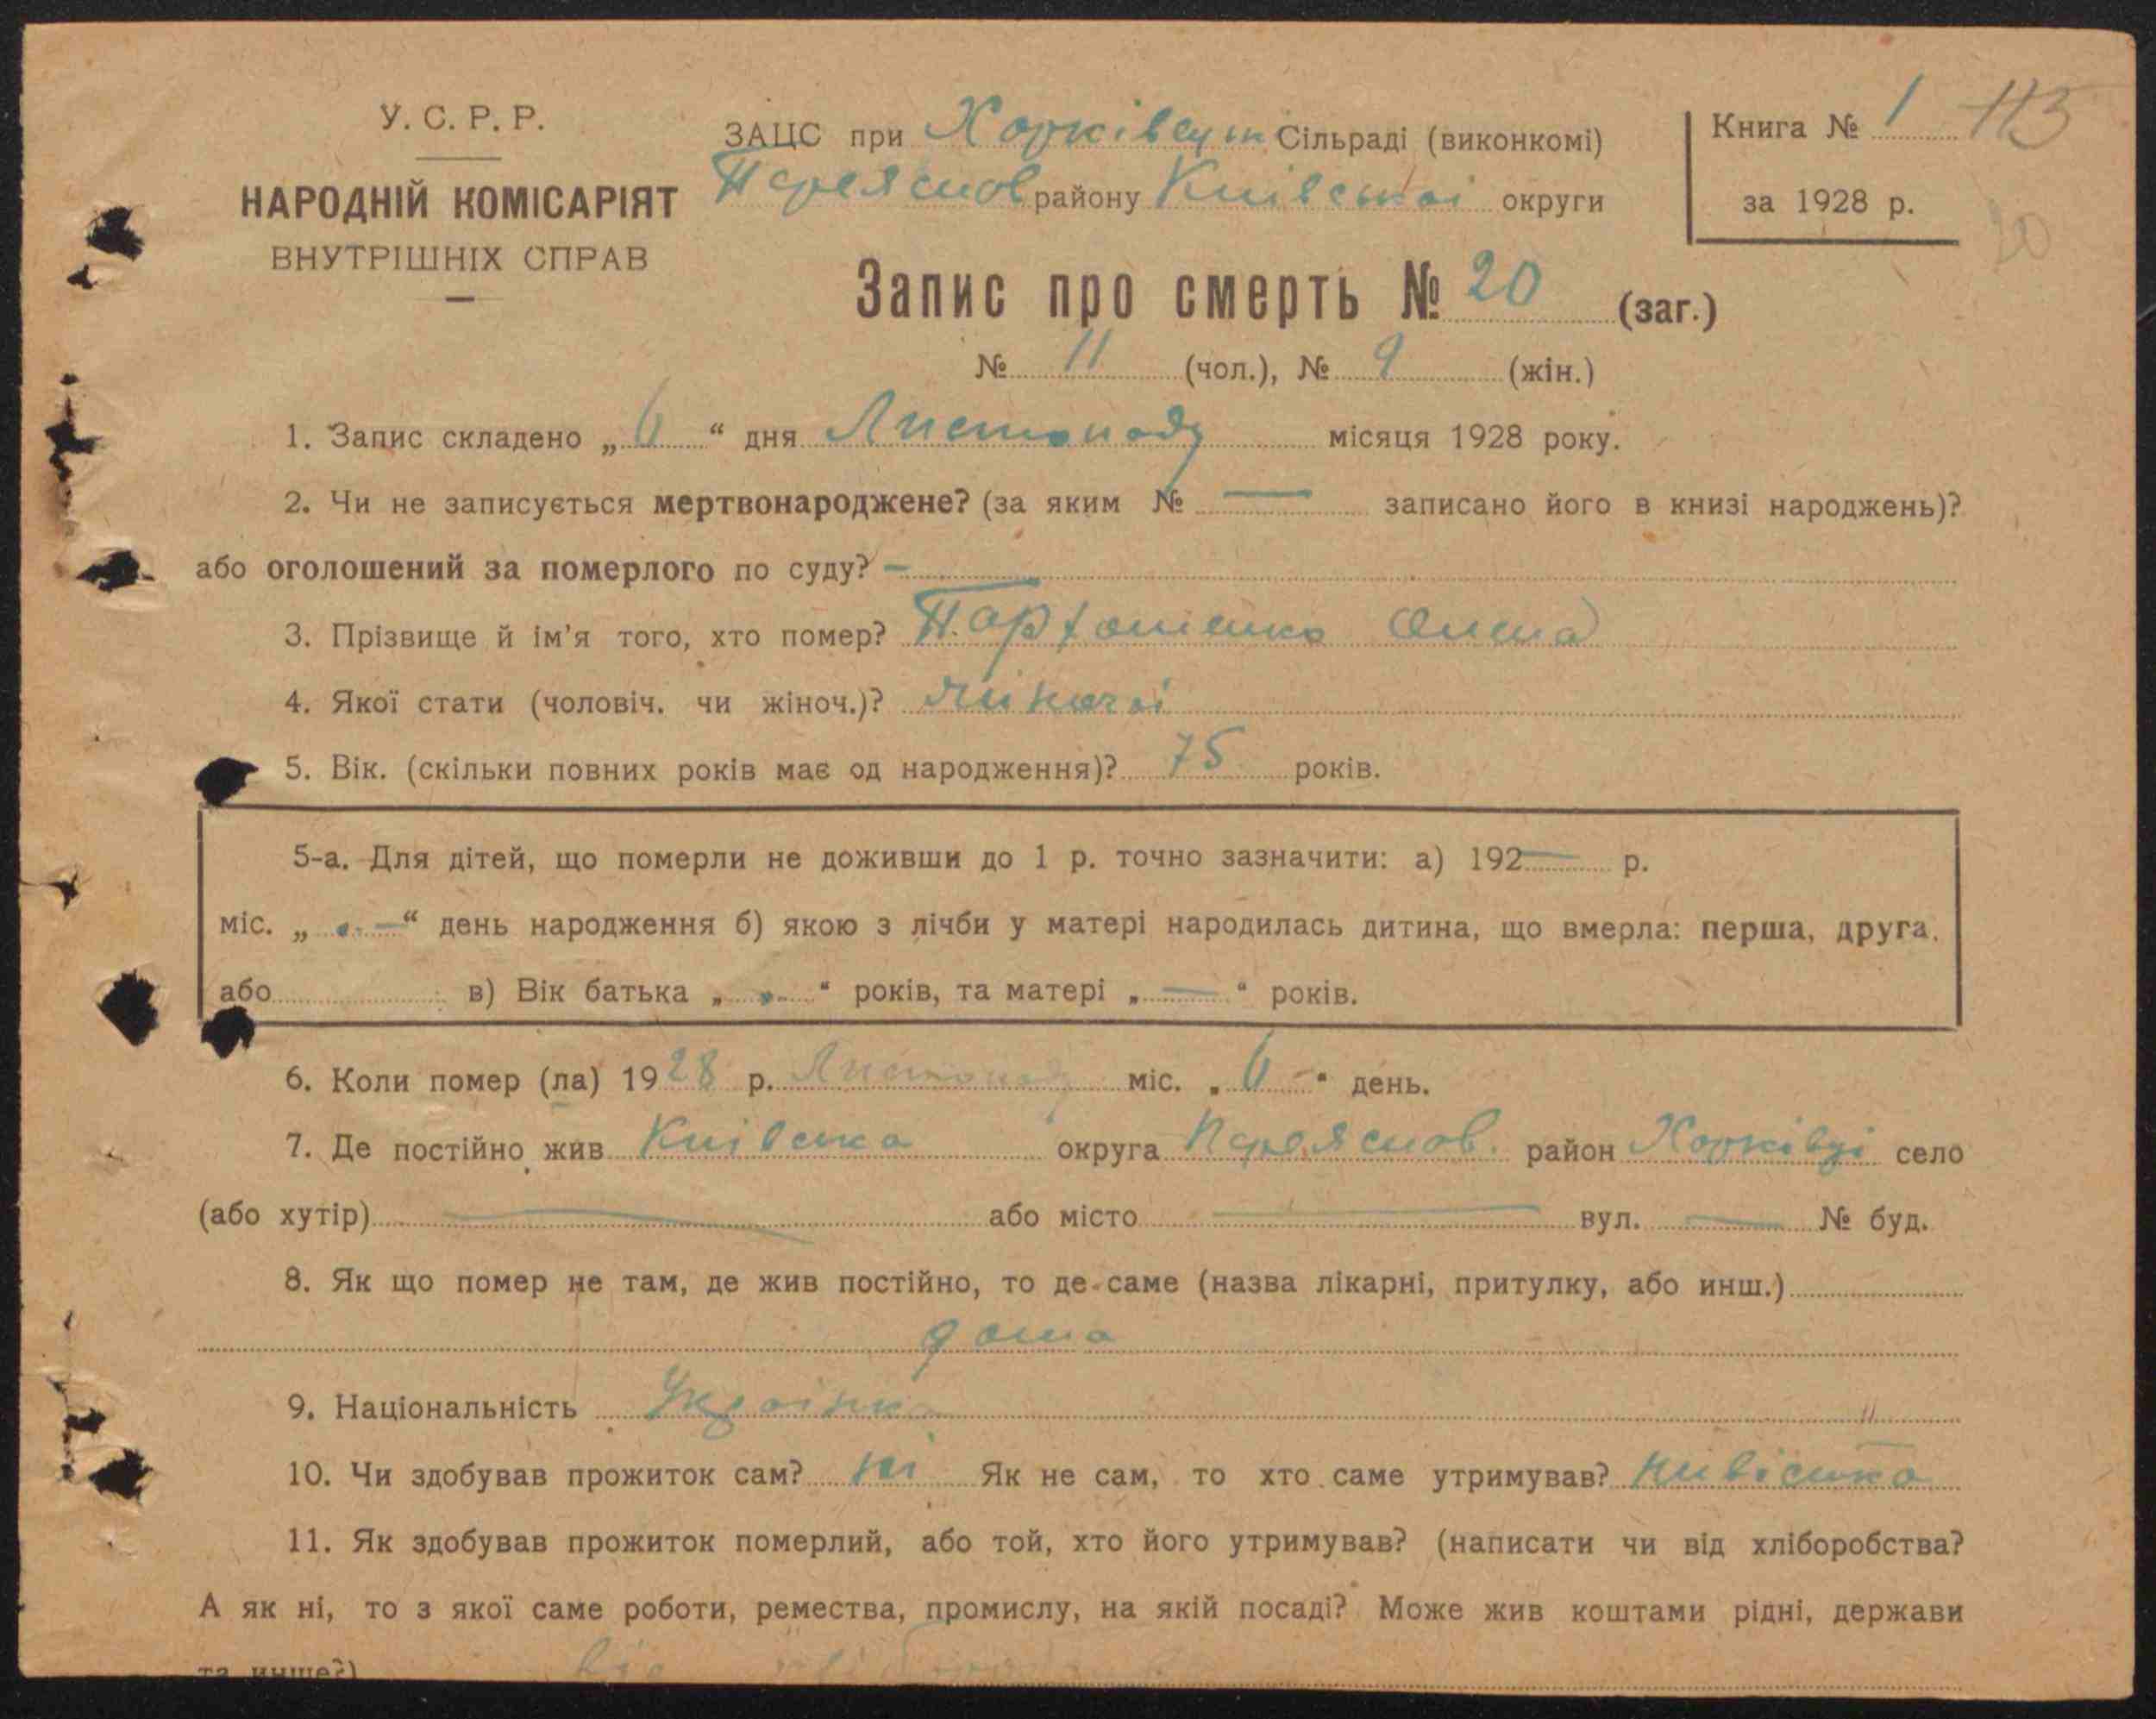 У. С. Р. Р.
НАРОДНІЙ КОМІСАРІЯТ
ВНУТРІШНІХ СПРАВ
ЗАЦС при Харківецьк Сільраді (виконкомі)
Переяслов району Київської округи
Книга № 1 113
за 1928 р.
20
Запис про смерть № 20 (заг.)
№ 11 (чол.), № 9 (жін.)
1. Запис складено „ 6 “ дня Листопаду місяця 1928 року.
2. Чи не записується мертвонароджене? (за яким № — записано його в книзі народжень)?
або оголошений за померлого по суду? —
3. Прізвище й ім'я того, хто помер?
4. Якої стати (чоловіч. чи жіноч.)? жіночої
5. Вік. (скільки повних років має од народження)? 75 років.
5-а. Для дітей, що померли не доживши до 1 р. точно зазначити: а) 192 — р.
міс. „ — “ день народження б) якою з лічби у матері народилась дитина, що вмерла: перша, друга,
або в) Вік батька „ “ років, та матері „ — “ років.
6. Коли помер (ла) 1928 р. Листопаду міс. „ 6 “ день.
7. Де постійно жив Київська округа Переяслов. район Харківці село
(або хутір) — або місто — вул. — № буд.
8. Як що помер не там, де жив постійно, то де саме (назва лікарні, притулку, або инш.)
дома
9. Національність Українка
10. Чи здобував прожиток сам? ні Як не сам, то хто саме утримував? невістка
11. Як здобував прожиток померлий, або той, хто його утримував? (написати чи від хліборобства?
А як ні, то з якої саме роботи, ремества, промислу, на якій посаді? Може жив коштами рідні, держави
та инше?) від